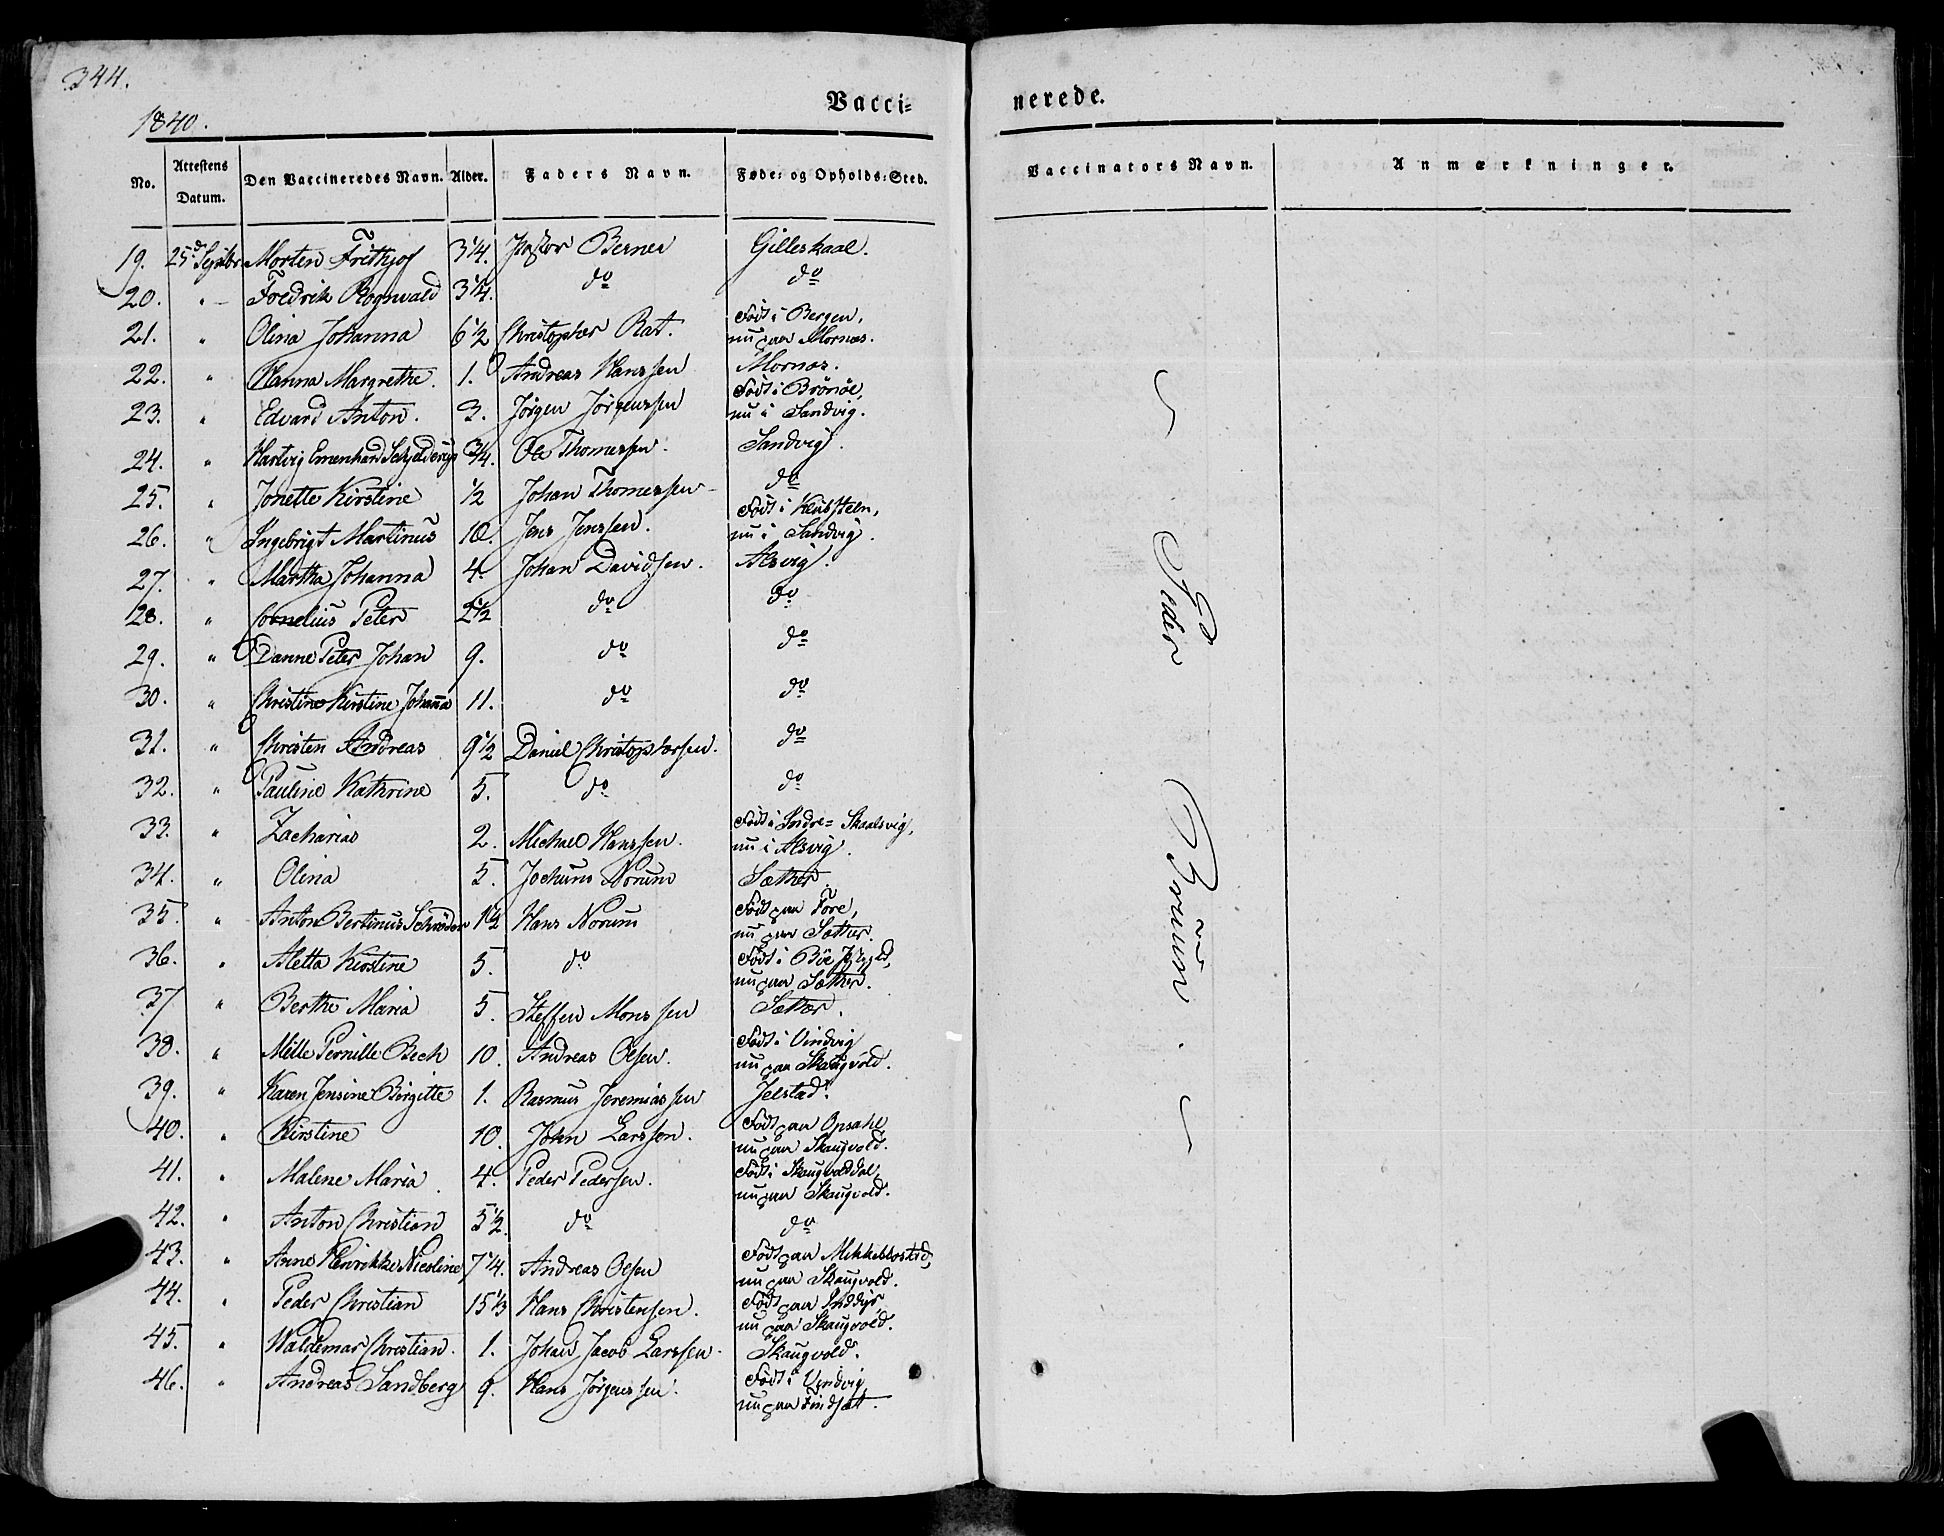 344.
1840.
Vacci=
nerede.
No. Attestens Datum. Den Vaccineredes Navn. Alder. Faders Navn. Føde= og Opholds=Sted.
Vaccinators Navn. Anmærkninger.
19. 25d Septbr Morten Frithjof 3 1/4. Pastor Berner Gilleskaal.
20. " Fredrik Rognvald 3 1/4. do do
21. " Olina Johanna 6 1/2 Christopher Rat. Født i Bergen,
nu paa Mornæs.
22. " Hanna Margrethe. 1. Andreas Hanssen Mornæs.
23. " Edvard Anton. 3. Jørgen Jørgenssen Født i Brönöe,
nu i Sandvig.
24. " Hartvig Emenhard Schjelderup 3/4. Ole Thomessen. Sandvig.
25. " Jonette Kirstine 1/2 Johan Thomessen do
26. " Ingebrigt Martinus 10. Jens Jenssen. Født i
nu i Sandvig.
27. " Martha Johanna 4. Johan Davidsen. Alsvig.
28. " Cornelius Peter 2 1/2 do do
29. " Danne Peter Johan 9. do do
30. " Christine Kirstine Johanna 11. do do
31. " Christen Andreas 9 1/2 Daniel Christophersen. do
32. " Pauline Kathrine 5. do do
33. " Zacharias 2. Michael Hanssen. Født i Indre= Skaalsvig,
nu i Alsvig.
34. " Olina 5. Jochum Norum Sæther.
35. " Anton Bertinus Schrøder 1 1/2 Hans Norum Født paa Före,
nu paa Sæther.
36. " Aletta Kirstine 5. do Født i Böe
nu paa Sæther.
37 " Berthe Maria 5. Steffen Monssen Sæther.
38. " Mille Pernille Bech 10. Andreas Olsen. Født i Vindvig
nu paa Skaugvold.
39. " Karen Jensine Birgitte 1. Rasmus Jeremiassen Jelstad.
40. " Kirstine 10. John Larssen. Født paa Opsahl,
nu paa Skaugvold.
41. " Malene Maria 4. Peder Pedersen. Født i Skaugvolddal,
nu paa Skaugvold.
42. " Anton Christian 5 1/2. do do
43. " Anne Henrikke Nicoline 7 1/4. Andreas Olsen Født paa Mikkelbostad,
nu paa Skaugvold.
44. " Peder Christian 15 1/3 Hans Christensen. Født paa Inddyr
nu paa Skaugvold.
45. " Waldemar Christian. 1. Johan Jacob Larssen. Skaugvold.
46. " Andreas Sandberg 9. Hans Jørgenssen. Født i Vindvig
nu paa Findsæt.
Peder Brüun.